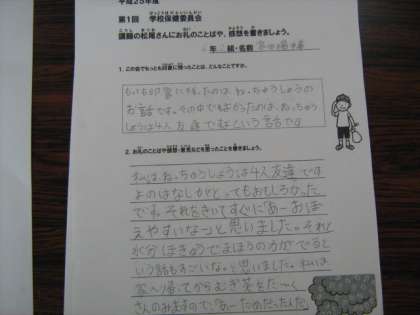 平成25年度
第1回 学校保健委員会
講師の松尾さんにお礼のことばや、感想を書きましょう。
年 組・名前
1. この会でもっとも印象に残ったことは、どんなことですか。
もっとも印象に残ったのは、ねっちゅうしょうの
お話です。その中でもよかったのは、ねっちゅう
しょうは4人友達ですねという言ですす
2. お礼のことばや感想・意見などを思ったことを書きましょう。
私は、ねっちゅうしょうは4人友達です
よのはなしがとってもおもしろかった
です。それをきいてすぐに「あーおぼ
えやすいなーっと思いました。それに
水分ほきゅうでまほうの力がでると
いう話もすごいな。と思いました。私は
家へ帰ってからむぎ茶をたーく
さんのみますので、「あーためだったんだ